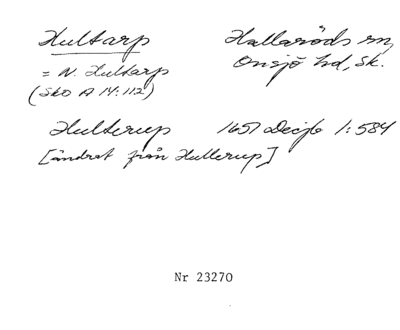 Hultarp
Hallaröds sn,
= N. Hultarp
Onsjö hd, Sk.
(SkO A 14:112)
Hulterup 1657 Decjb 1:584
[ändrat från Hullerup]
Nr 23270